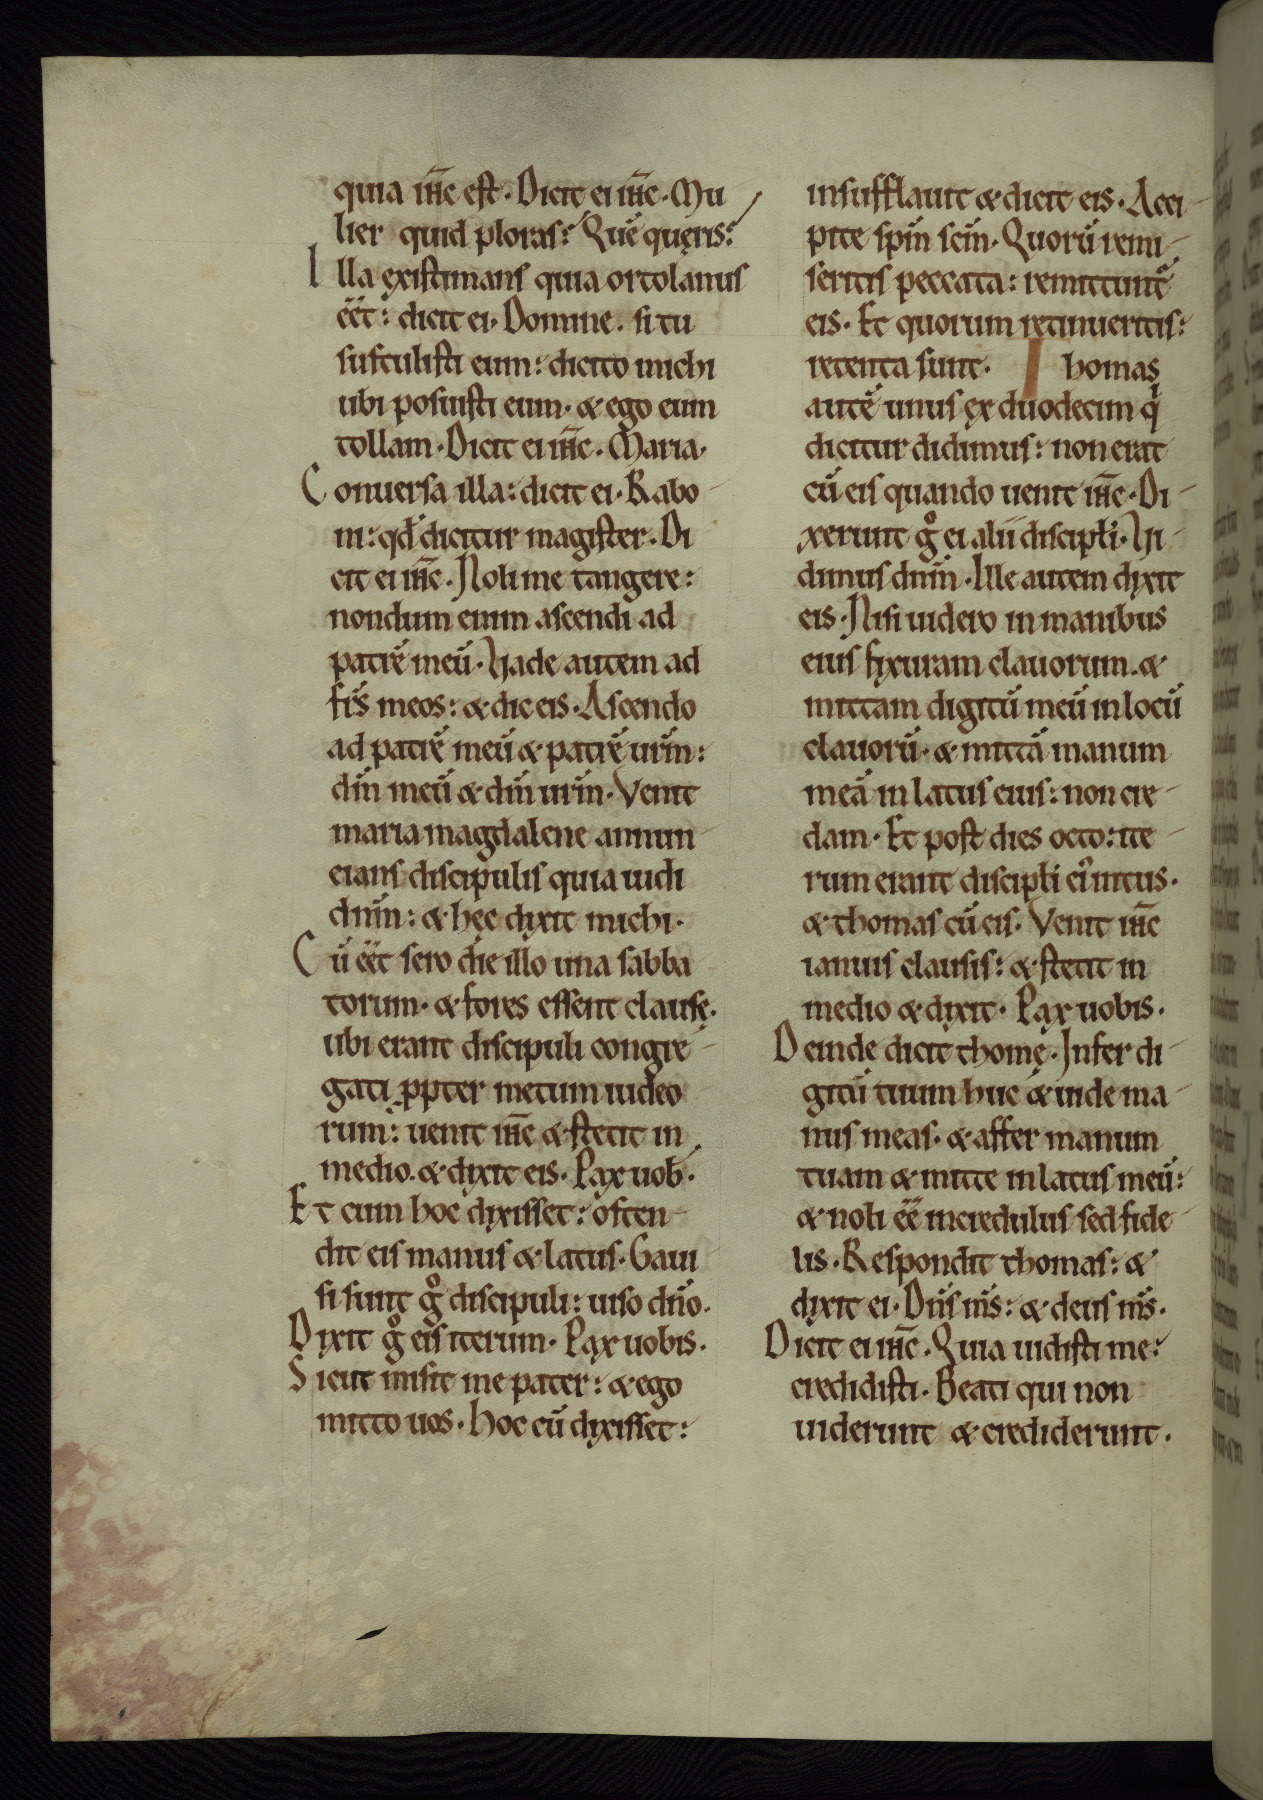 quia ih̅c est. Dicit ei ih̅c. Mu
lier quid ploras? Que̅ quęris?
Illa existimans quia ortolanus
ee̅t: dicit ei. Domine. si tu
sustulisti eum: dicito michi
ubi posuisti eum. & ego eum
tollam. Dicit ei ih̅c. Maria.
Conuersa illa: dicit ei. Rabo
ni: qd̅ dicitur magister. Di
cit ei ih̅c. Noli me tangere:
nondum enim ascendi ad
patre̅ meu̅. Vade autem ad
fr̅s meos: & dic eis. Ascendo
ad patre̅ meu̅ & patre̅ ur̅m:
dm̅ meu̅ & dm̅ ur̅m. Venit
maria magdalene annun
cians discipulis quia uidi
dnm̅: & hęc dixit michi.
Cu̅ ee̅t sero die illo una sabba
torum. & fores essent clausę.
ubi erant discipuli congre
gati ꝓpter metum iudeo
rum: uenit ih̅c & stetit in
medio. & dixit eis. Pax uob̅.
Et cum hoc dixisset: osten
dit eis manus & latus. Gaui
si sunt gͦ discipuli: uiso dn̅o.
Dixit gͦ eis iterum. Pax uobis.
Sicut misit me pater: & ego
mitto uos. Hoc cu̅ dixisset:
insufflauit & dicit eis. Acci
pite spm̅ scm̅. Quoru̅ remi
seritis peccata: remittunt᷑
eis. Et quorum retinueritis:
retenta sunt. Thomas
aute̅ unus ex duodecim qͥ
dicitur didimus: non erat
cu̅ eis quando uenit ih̅c. Di
xerunt gͦ ei alii discipłi. Vi
dimus dnm̅. Ille autem dixit
eis. Nisi uidero in manibus
eius fixuram clauorum. &
mittam digitu̅ meu̅ in locu̅
clauoru̅. & mitta̅ manum
mea̅ in latus eius: non cre
dam. Et post dies octo: ite
rum erant discipłi ei᷒ intus.
& thomas cu̅ eis. Venit ih̅c
ianuis clausis: & stetit in
medio & dixit. Pax uobis.
Deinde dicit thomę. Infer di
gitu̅ tuum huc & uide ma
nus meas. & affer manum
tuam & mitte in latus meu̅:
& noli ee̅ incredulus sed fide
lis. Respondit thomas: &
dixit ei. Dn̅s m̅s: & deus m̅s.
Dicit ei ih̅c. Quia uidisti me:
credidisti. Beati qui non
uiderunt & crediderunt.